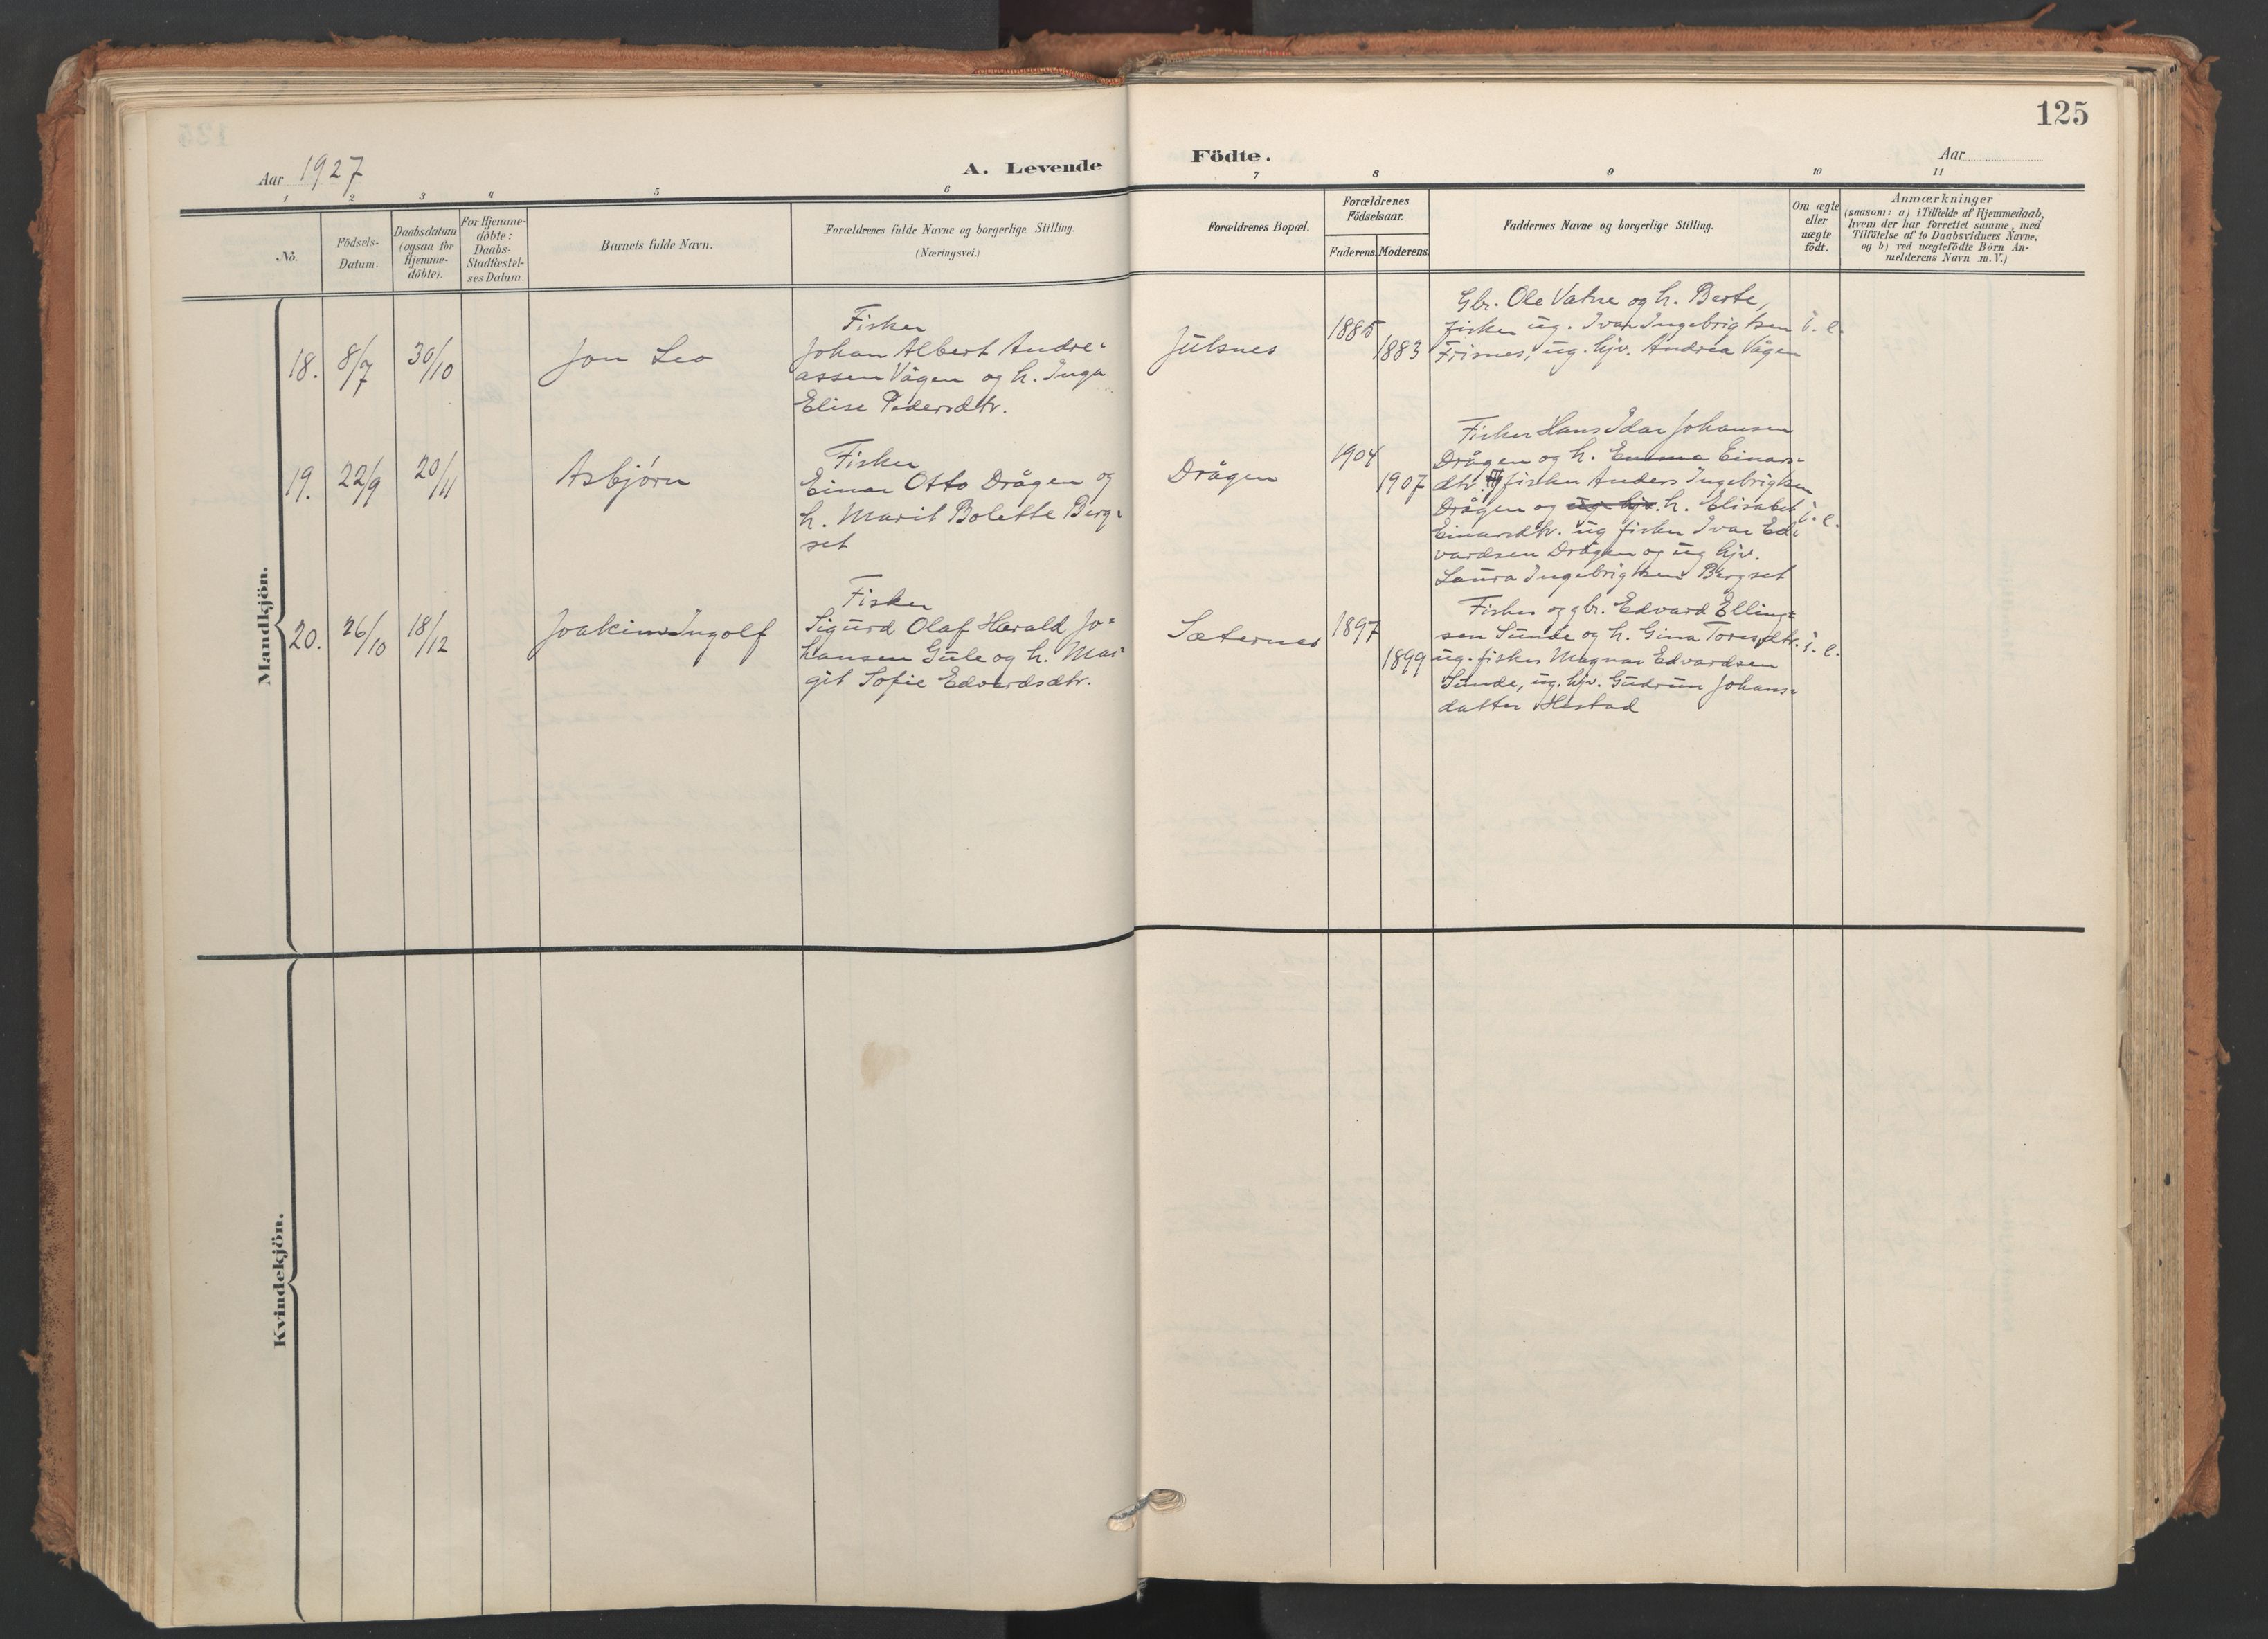 125
Aar 1927
A. Levende Födte.
Aar
1 2 3 4 5 6 7 8 9 10 11
No.
Födsels-
Datum.
Daabsdatum
(ogsaa for
Hjemme-
döbte).
For Hjemme-
döbte:
Daabs-
Stadfæstel-
ses Datum.
Barnets fulde Navn.
Forældrenes fulde Navne og borgerlige Stilling.
(Næringsvei.)
Forældrenes Bopæl.
Forældrenes
Födselsaar.
Faderens. Moderens.
Faddernes Navne og borgerlige Stilling.
Om ægte
eller
uægte
födt.
Anmærkninger
(saasom: a) i Tilfælde af Hjemmedaab,
hvem der har forrettet samme, med
Tilföielse af to Daabsvidners Navne,
og b) ved uægtefödte Börn An-
melderens Navn m. V.)
Mandkjön.
18. 8/7 30/10 Jon Leo
Fisker
Johan Albert Andre-
assen Vågen og h. Inga
Elise Pedersdtr.
Julsnes
1885
1883
Gbr. Ole Vatne og h. Berte,
fisker ug. Ivar Ingebrigtsen
Frisnes, ug. hjv. Andrea Vågen
i. e.
19. 22/9 20/11 Asbjørn
Fisker
Einar Otto Drågen og
h. Marit Bolette Berg-
set
Drågen
1904
1907
Fisker Hans Idar Johansen
Drågen og h. Emma Einars-
dtr. fisker Anders Ingebrigtsen
Drågen og ug. hjv. h. Elisabet
Einarsdtr. ug fisker Ivar Ed-
vardsen Drågen og ug hjv.
Laura Ingebrigtsen Bergset
i. e.
20. 26/10 18/12 Joakim Ingolf
Fisker
Sigurd Olaf Harald Jo-
hansen Gule og h. Mar-
git Sofie Edvardsdtr.
Sæternes
1897
1899
Fisker og gbr. Edvard Elling-
sen Sunde og h. Gina Toresdtr.
ug. fisker Magnar Edvardsen
Sunde, ug. hjv. Gudrun Johans-
datter Hestad
i. e.
Kvindekjön.